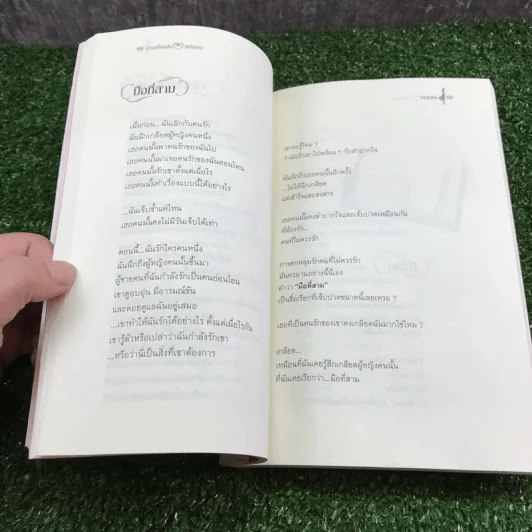 มือที่สาม
เมื่อก่อน...ฉันเลิกกับคนรัก
ฉันนึกเกลียดผู้หญิงคนหนึ่ง
เธอคนนั้นพาคนรักของฉันไป
เธอคนนั้นมาเจอคนรักของฉันตอนไหน
เธอคนนั้นรักเขาตั้งแต่เมื่อไร
เธอคนนั้นทำเรื่องแบบนี้ได้อย่างไร
...ฉันเจ็บช้ำแค่ไหน
เธอคนนั้นคงไม่มีวันเจ็บได้เท่า
ตอนนี้...ฉันรักใครคนหนึ่ง
ฉันนึกถึงผู้หญิงคนนั้นขึ้นมา
ผู้ชายคนที่ฉันกำลังรักเป็นคนอ่อนโยน
เขาอบอุ่น มีอารมณ์ขัน
และคอยดูแลฉันอยู่เสมอ
...เขาทำให้ฉันรักได้อย่างไร ตั้งแต่เมื่อไรกัน
เขารู้ตัวหรือเปล่าว่าฉันกำลังรักเขา
...หรือว่านี่เป็นสิ่งที่เขาต้องการ
เขาจะรู้ไหม ?
ว่าฉันรักเขาไปพร้อมๆ กับลำบากใจ
ฉันนึกถึงเธอคนนั้นอีกครั้ง
...ไม่ได้นึกเกลียด
แต่เข้าใจและสงสาร
เธอคนนั้นคงลำบากใจและเจ็บปวดเหมือนกัน
ที่ต้องรัก...
คนที่ไม่ควรรัก
การตกหลุมรักคนที่ไม่ควรรัก
มันทรมานอย่างนี้นี่เอง
คำว่า "มือที่สาม"
เป็นชื่อเรียกที่เจ็บปวดขนาดนี้เลยเหรอ ?
เธอที่เป็นคนรักของเขาคงเกลียดฉันมากใช่ไหม ?
เกลียด...
เหมือนที่ฉันเคยรู้สึกเกลียดผู้หญิงคนนั้น
ที่ฉันเคยเรียกว่า...มือที่สาม